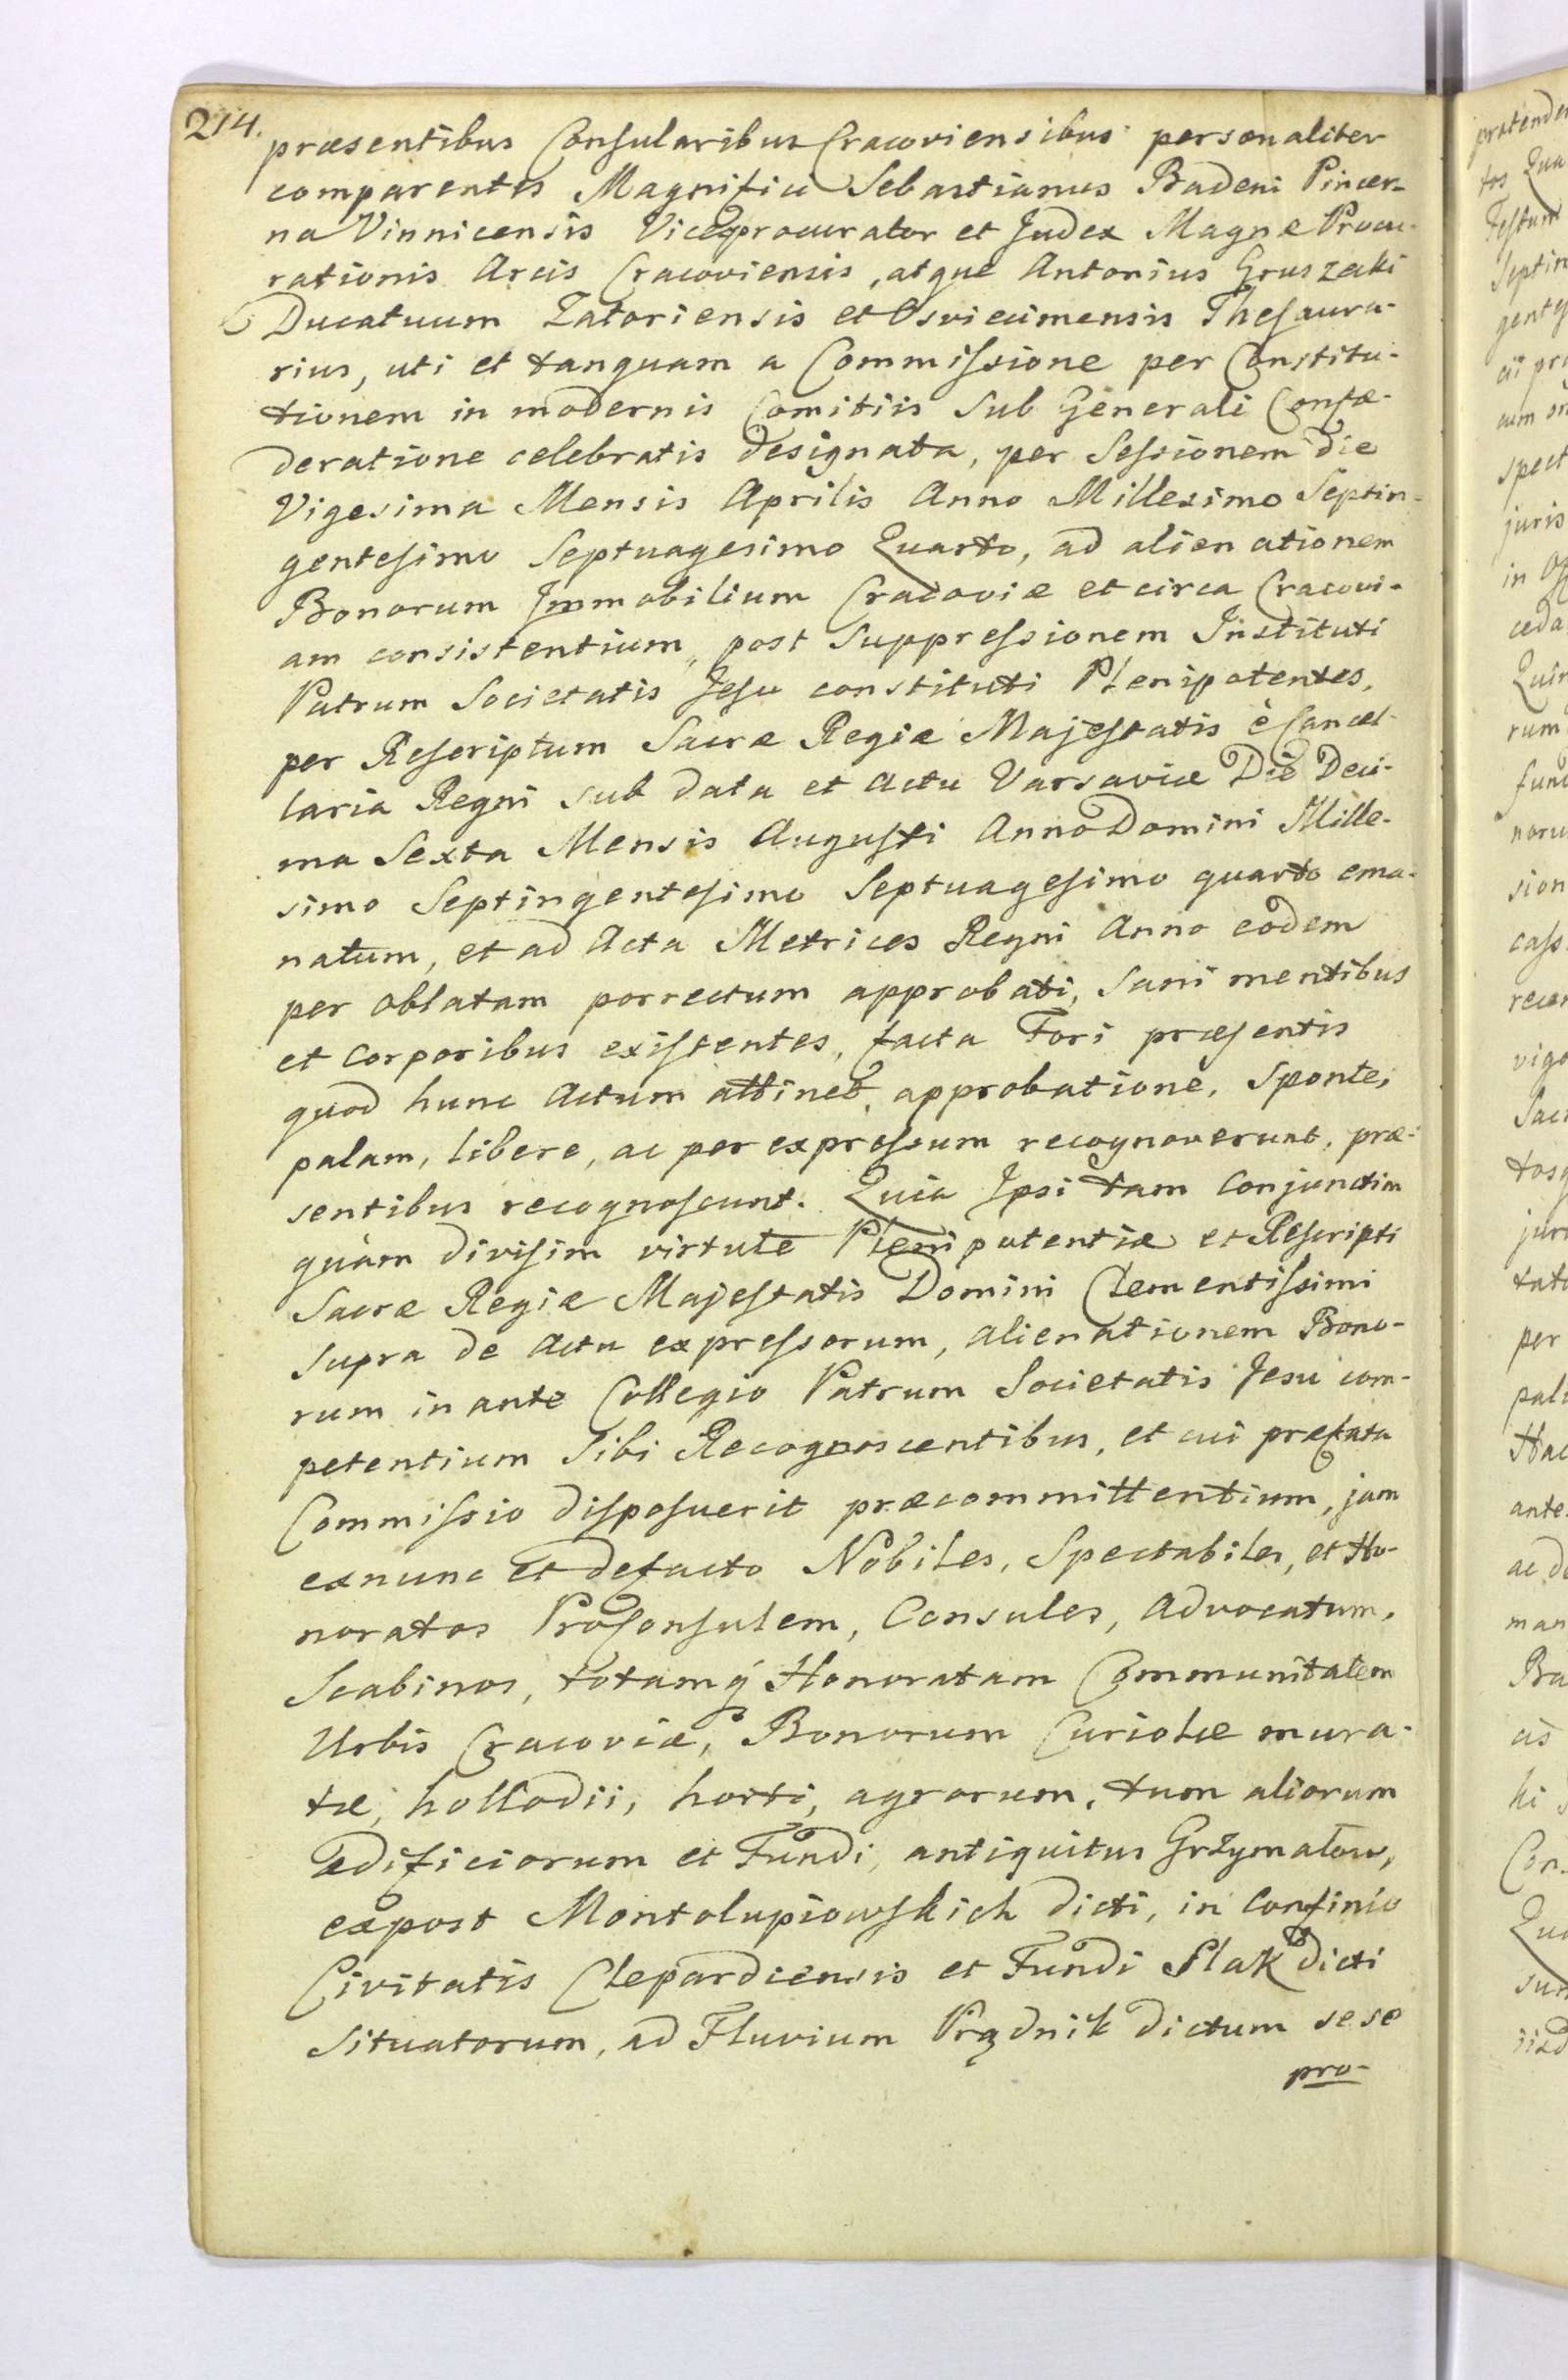 214.
præsentibus Consularibus Cracoviensibus personaliter
comparentes Magnifici Sebastianus Badeni Pincer-
na Vinnicensis Viceprocurator et Judex Magnæ Procu-
rationis Arcis Cracoviensis, atque Antonius Gruszecki
Ducatuum Zatoriensis et Osviecimensis Thesaura-
rius, uti et tanquam a Commissione per Constitu-
tionem in modernis Comitiis sub Generali Confæ-
deratione celebratis designata, per Sessionem die
Vigesima Mensis Aprilis Anno Millesimo Septin-
gentesimo Septuagesimo Quarto, ad alienationem
Bonorum Immobilium Cracoviæ et circa Cracovi-
am consistentium, post Suppressionem Instituti
Patrum Societatis Jesu constituti Plenipotentes,
per Rescriptum Sacræ Regiæ Majestatis è Cancel-
laria Regni sub data et actu Varsaviæ Die Deci-
ma Sexta Mensis Augusti Anno Domini Mille-
simo Septingentesimo Septuagesimo quarto ema-
natum, et ad Acta Metrices Regni Anno eodem
per oblatam porrectum approbati, Sani mentibus
et Corporibus existentes, facta Fori præsentis
quod hunc Actum attinet, approbatione, Sponte,
palam, libere, ac per expressum recognoverunt, præ-
sentibus recognoscunt. Quia Ipsi tam Conjunctim
quàm divisim virtute Plenipotentiæ et Rescripti
Sacræ Regiæ Majestatis Domini Clementissimi
supra de Actu expressorum, alienationem Bono-
rum in ante Collegio Patrum Societatis Jesu com-
petentium Sibi Recognoscentibus, et cui præfata
Commissio disposuerit præcommittentium, jam
exnunc et defacto Nobiles, Spectabiles, et Ho-
noratos ProConsulem, Consules, Advocatum,
Scabinos, totamq́ Honoratam Communitatem
Urbis Cracoviæ, Bonorum Curiolæ mura-
tæ, hollodii, horti, agrorum, tum aliorum
ædificiorum et Fundi, antiquitus Grzymałow,
expost Montolupiowskich dicti, in Confinio
Civitatis Clepardiensis et Fundi Slak dicti
Situatorum, ad Fluvium Prądnik dictum sese
pro-